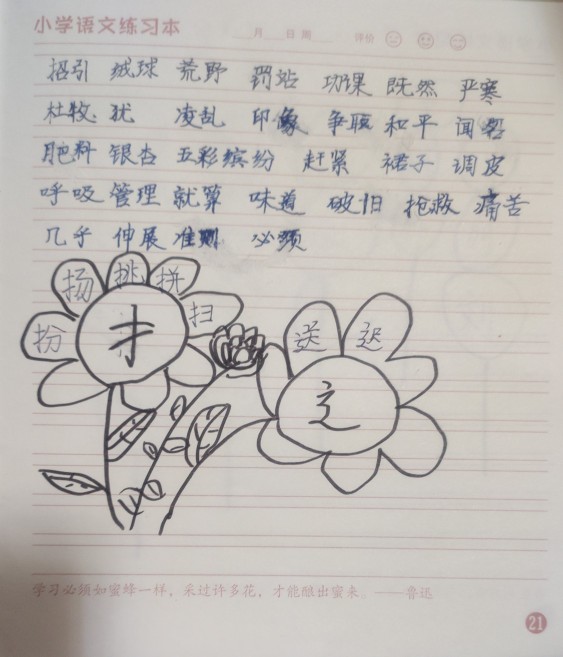 小学语文练习本
月 日 周 评价
招引 绒球 荒野 罚站 功课 既然 严寒
杜牧 犹 凌乱 印象 争取 和平 闻
肥料 银杏 五彩缤纷 赶紧 裙子 调皮
呼吸 管理 就算 味道 破旧 抢救 痛苦
几乎 伸展 准则 必须
扮 扬 挑 拼 扫
扌
送 迟
辶
学习必须如蜜蜂一样，采过许多花，才能酿出蜜来。——鲁迅
21